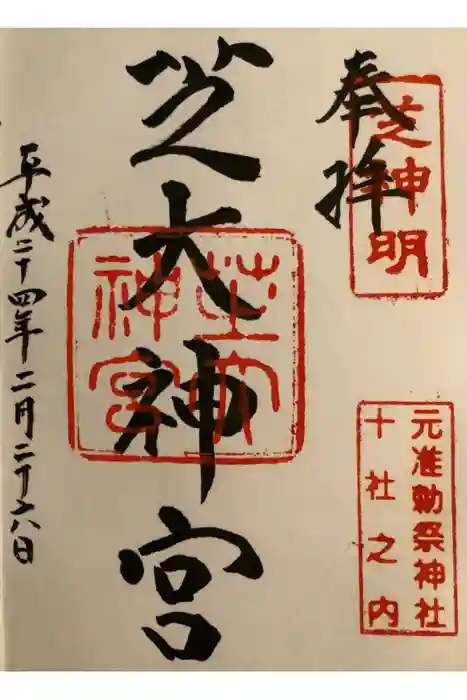 奉拝
芝神明
元准勅祭神社
十社之内
芝大神宮
芝大
神宮
平成二十四年二月二十六日